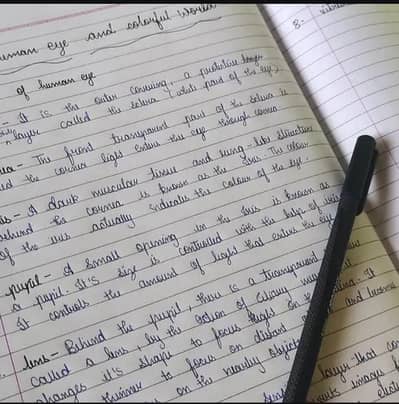 uman eye and colourful world
of human eye
- It is the outer covering, a protective tough
layer called the sclera (white part of the eye).
- The front transparent part of the sclera is
the cornea light enters the eye through cornea.
- A dark muscular tissue and ring-like structure
behind the cornea is known as the iris. The colour
of the iris actually indicates the colour of the eye.
pupil - A small opening in the iris is known as
a pupil. It's size is controlled with the help of iris
It controls the amount of light that enters the eye
lens - Behind the pupil, there is a transparent
called a lens, by the action of ciliary
changes it's shape to focus light on
thinner to focus on distant and becomes
on the nearby objects
layer that
images
8.